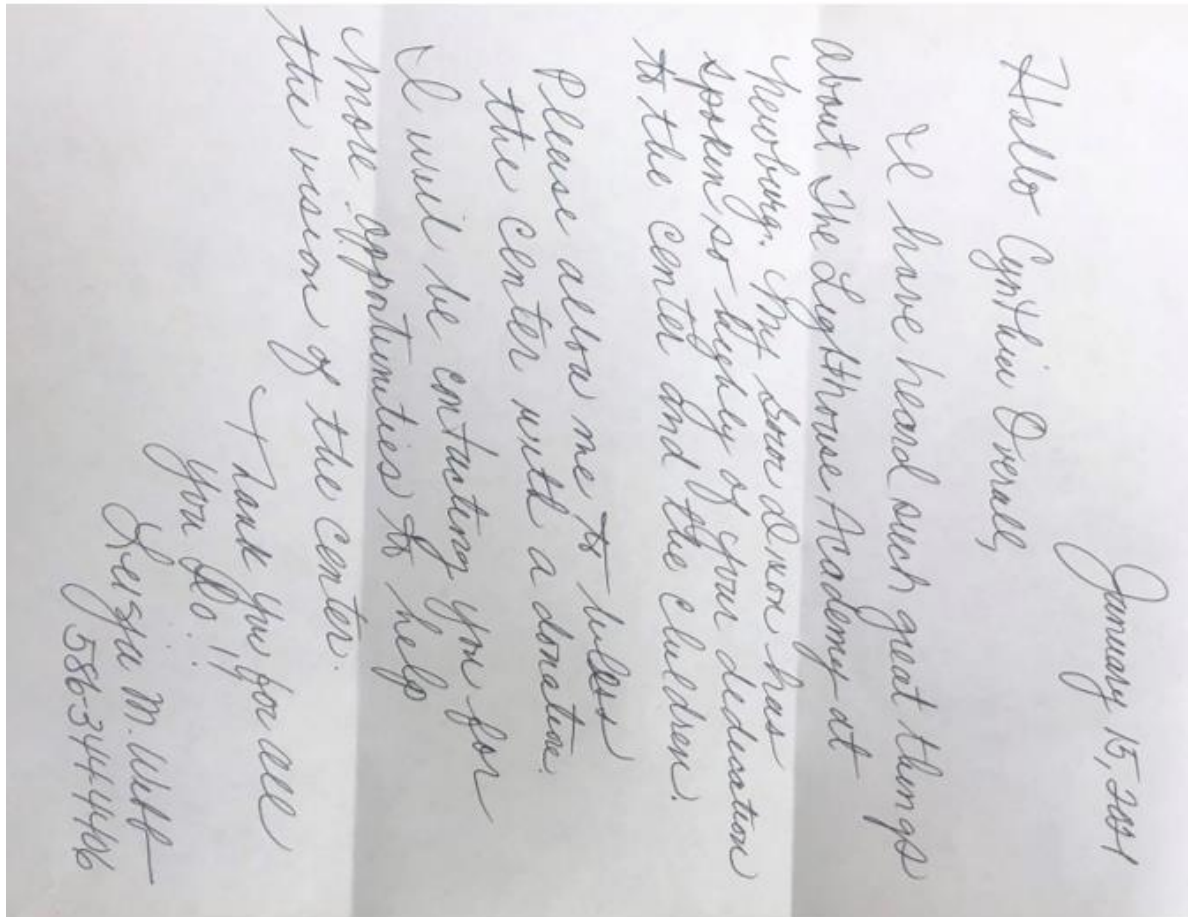 January 15, 2021
Hello Cynthia Overall,
I have heard such great things
about The Lighthouse Academy at
Newburg. My son Dixon has
spoken so highly of your dedication
to the center and the children.
Please allow me to bless
the center with a donation.
I will be contacting you for
more opportunities to help
the vision of the center.
Thank you for all
you do!!
M. Webb
586-344-4406